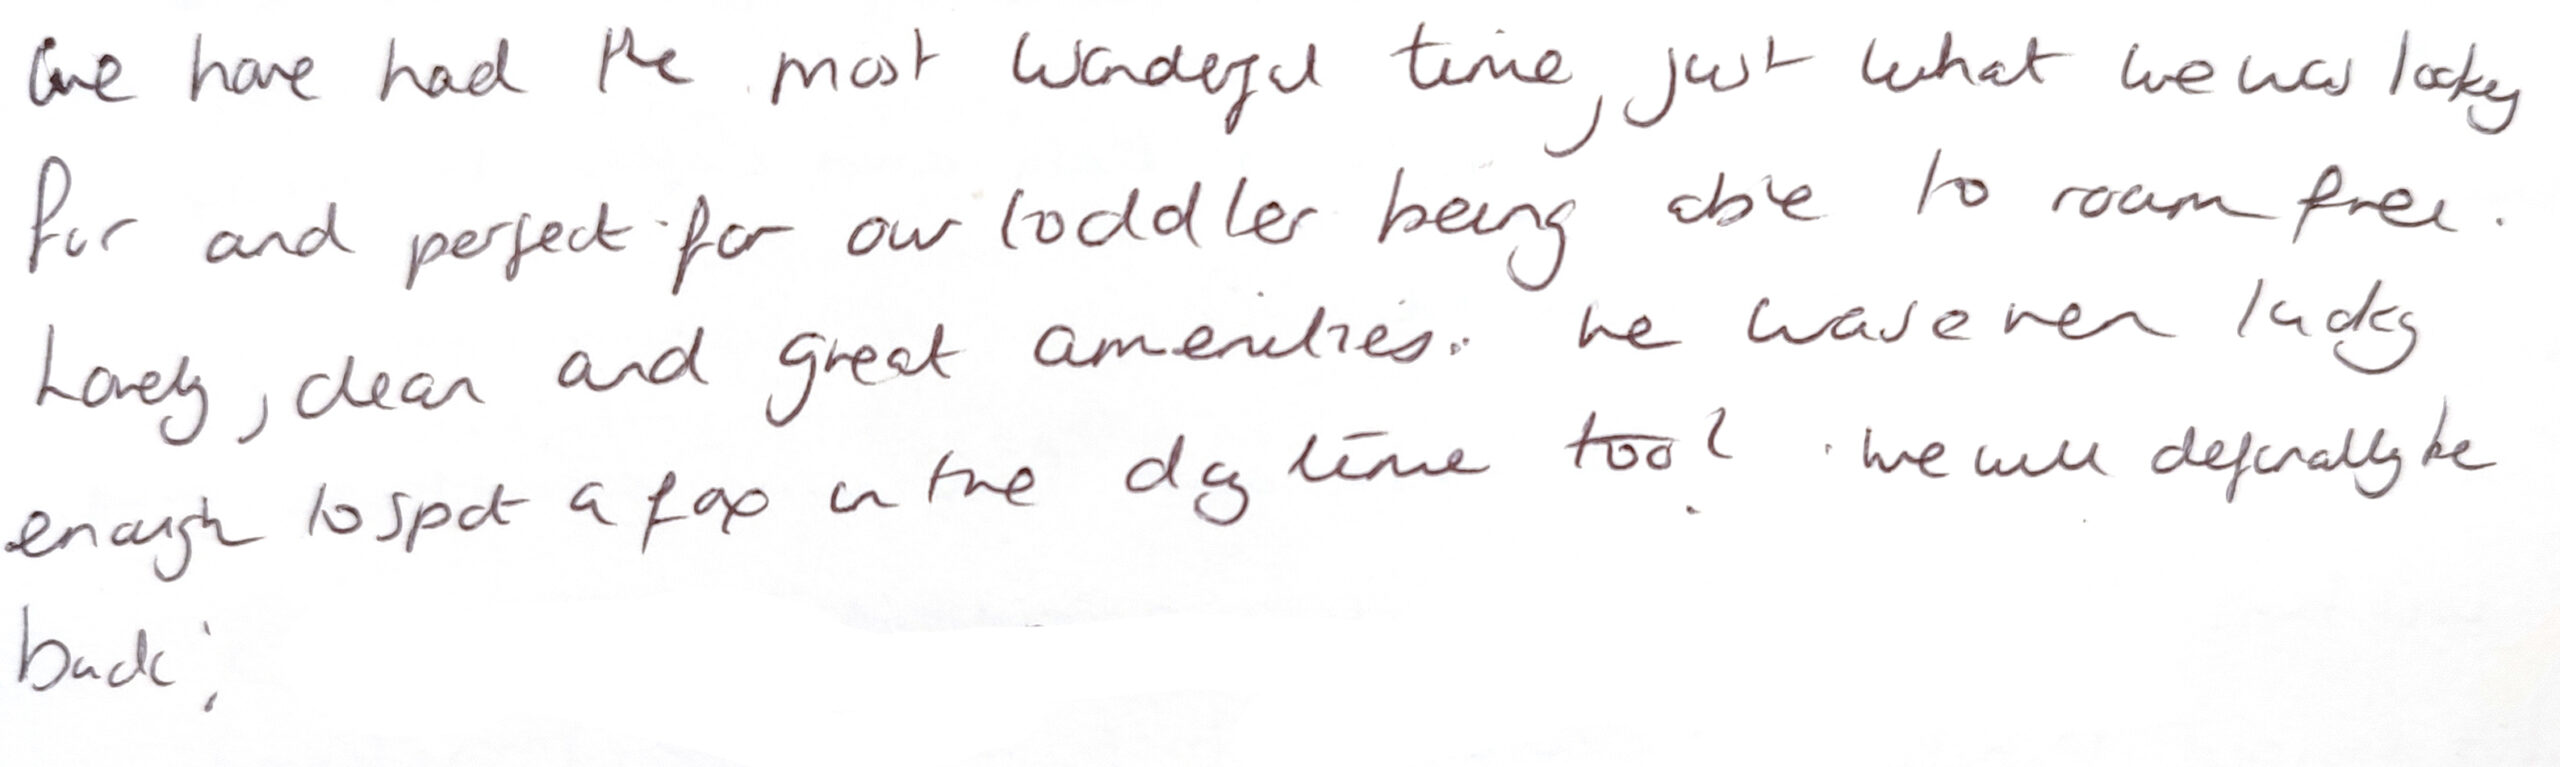 We have had the most wonderful time, just what we was looking
for and perfect for our toddler being able to roam free.
Lovely, clean and great amenities. he was even lucky
enough to spot a fox in the day time too! We will definitely be
back!